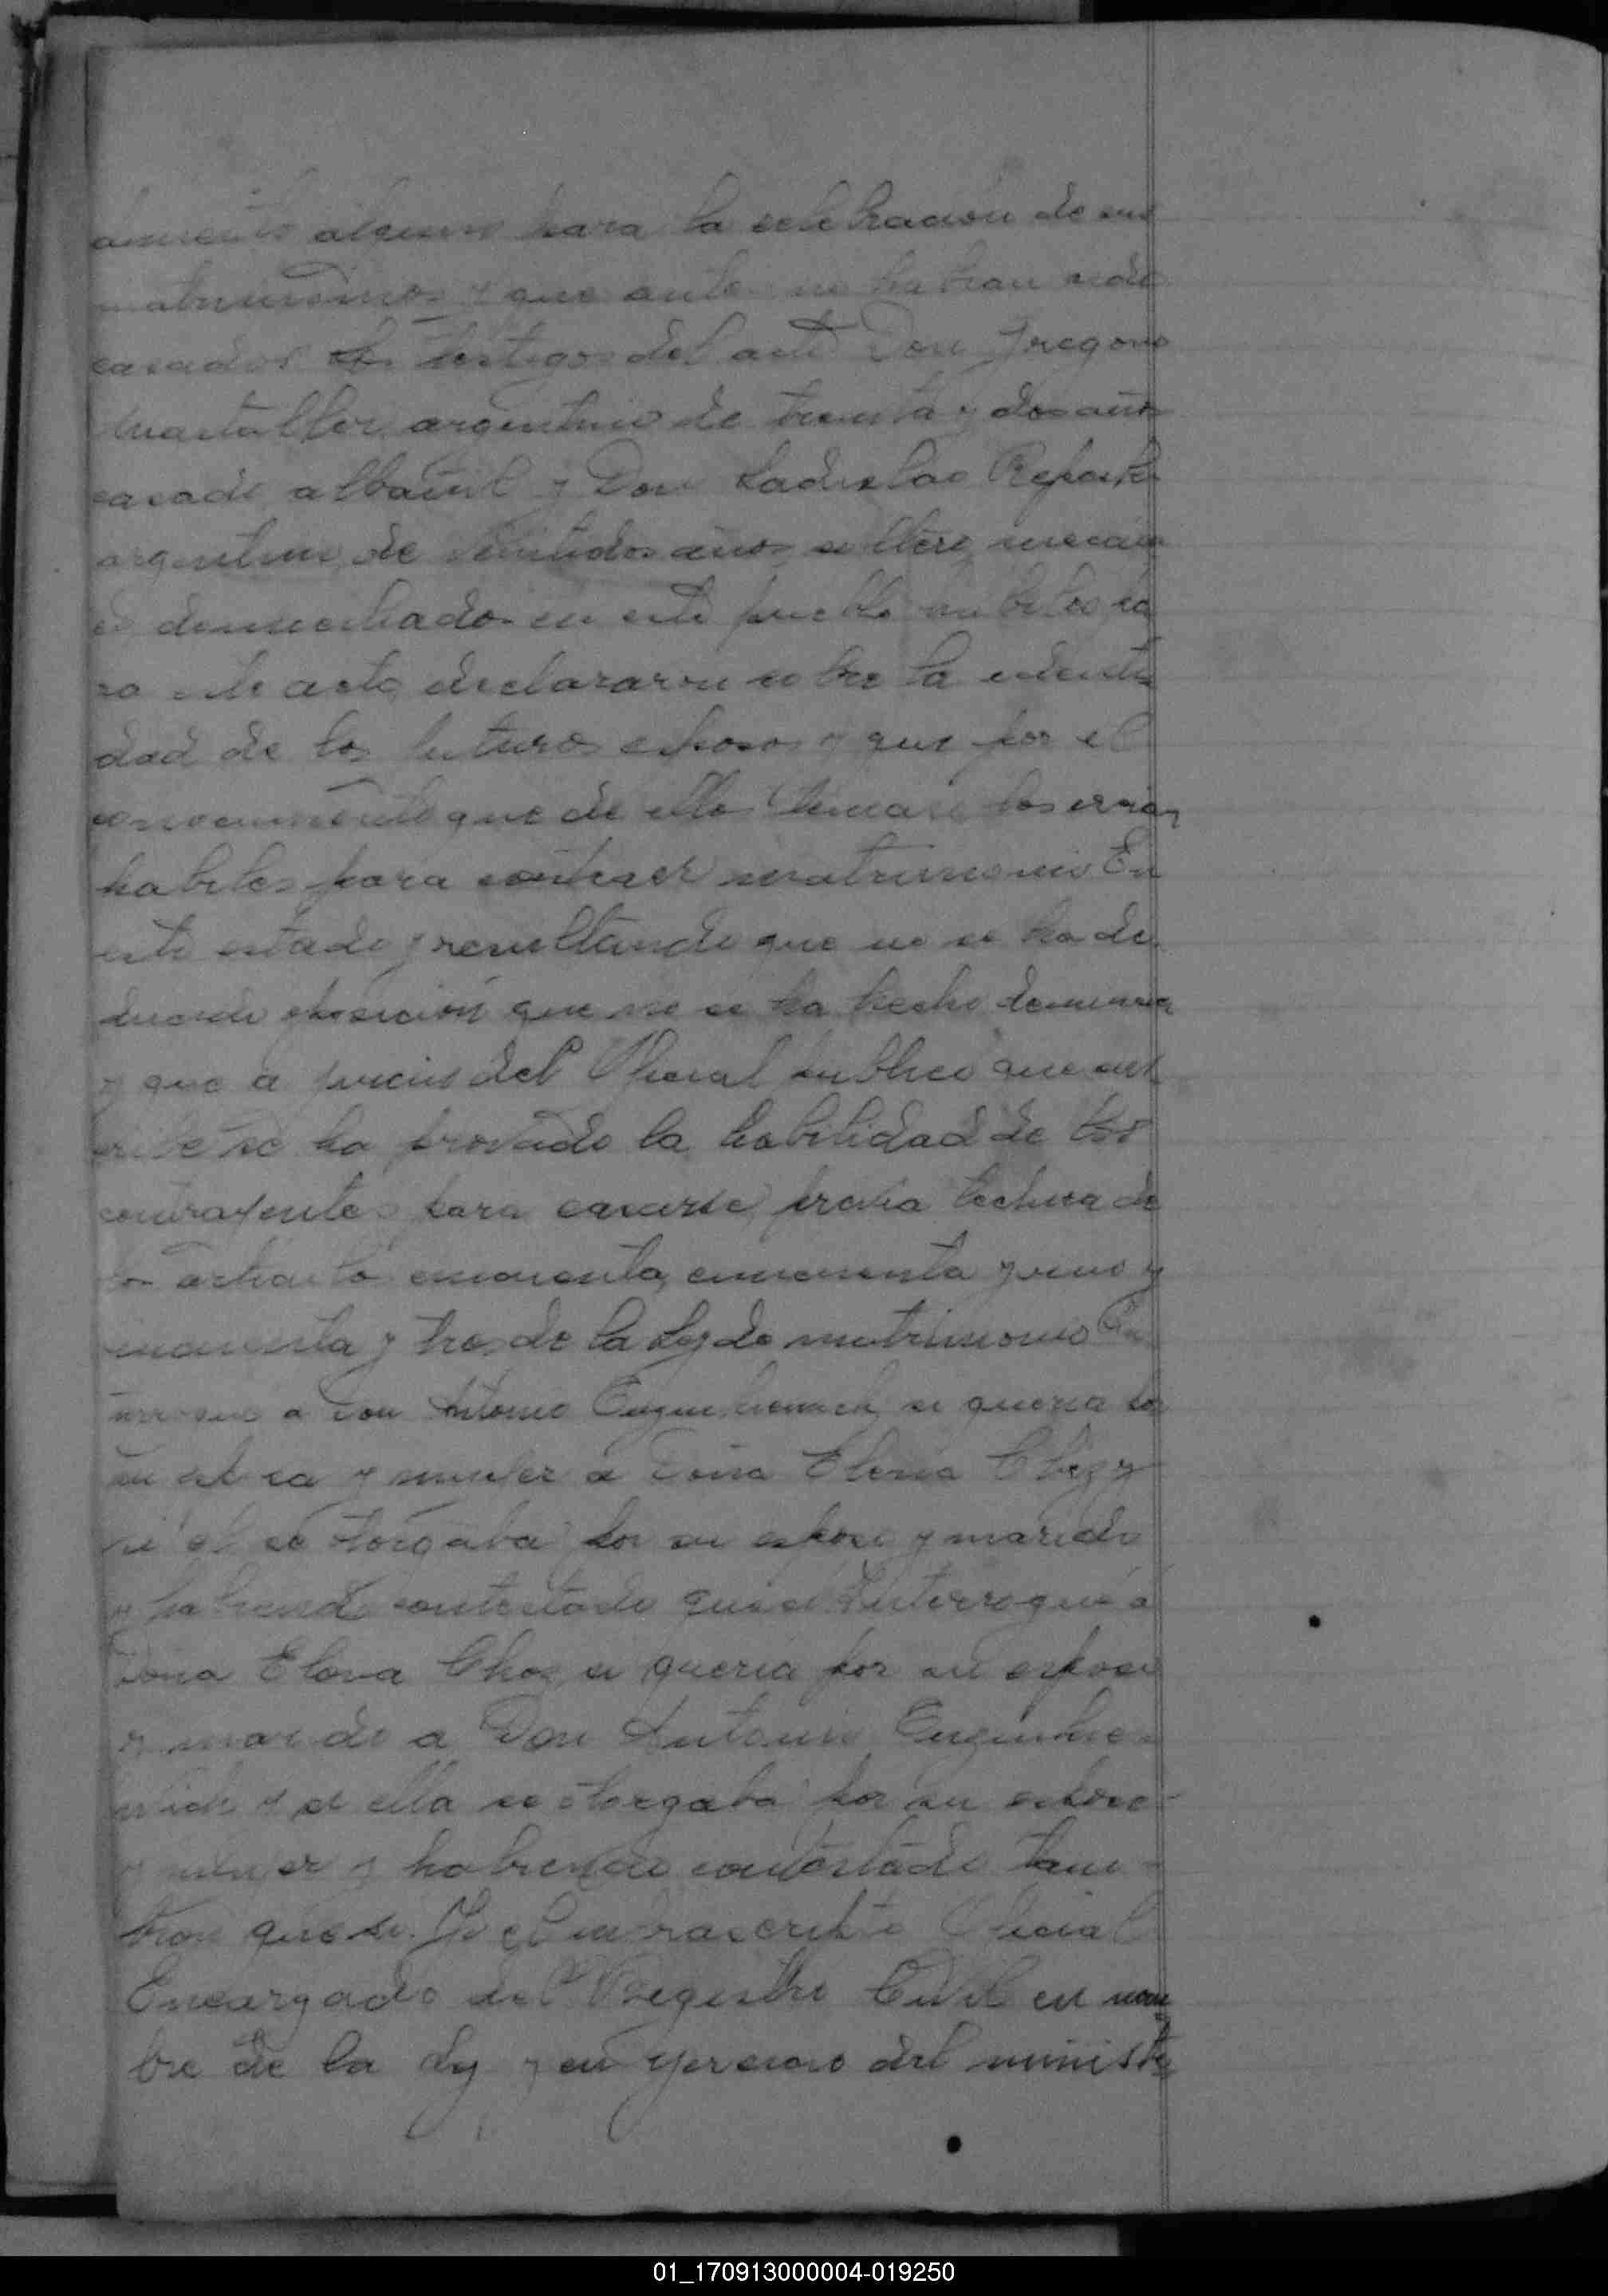 dimento alguno para la celebración de sus
matrimonio y que antes no habian sido
casados los testigos del acto Don Gregorio
argentino de treinta y dos años
casado albañil y Don Ladislao
argentino, de veintidos años soltero mecani
co domiciliados en este pueblo habiles pa
ra este acto, declararon sobre la identi
dad de los futuros esposos y que por el
conocimiento que de ellos tenian los creian
habiles para contraer matrimonio En
este estado y resultando que no se ha de
ducido oposicion que no se ha hecho denuncia
y que a juicio del Oficial publico que sus
cribe se ha provado la habilidad de los
contrayentes para casarse, previa lectura de
los articulos cincuenta, cincuenta y uno y
cincuenta y tres de la Ley de matrimonio
a Don Antonio si queria por
su esposa y mujer a Doña Elena
si el se otorgaba por su esposo y marido
y habiendo contestado que si Interrogué a
Doña Elena si queria por su esposo
y marido a Don Antonio
y si ella se otorgaba por su esposa
y mujer y habiendo contestado tam
bien que si. Yo el infrascripto Oficial
Encargado del Registro Civil en nom
bre de la Ley y en yercicio del ministe
01_170913000004-019250